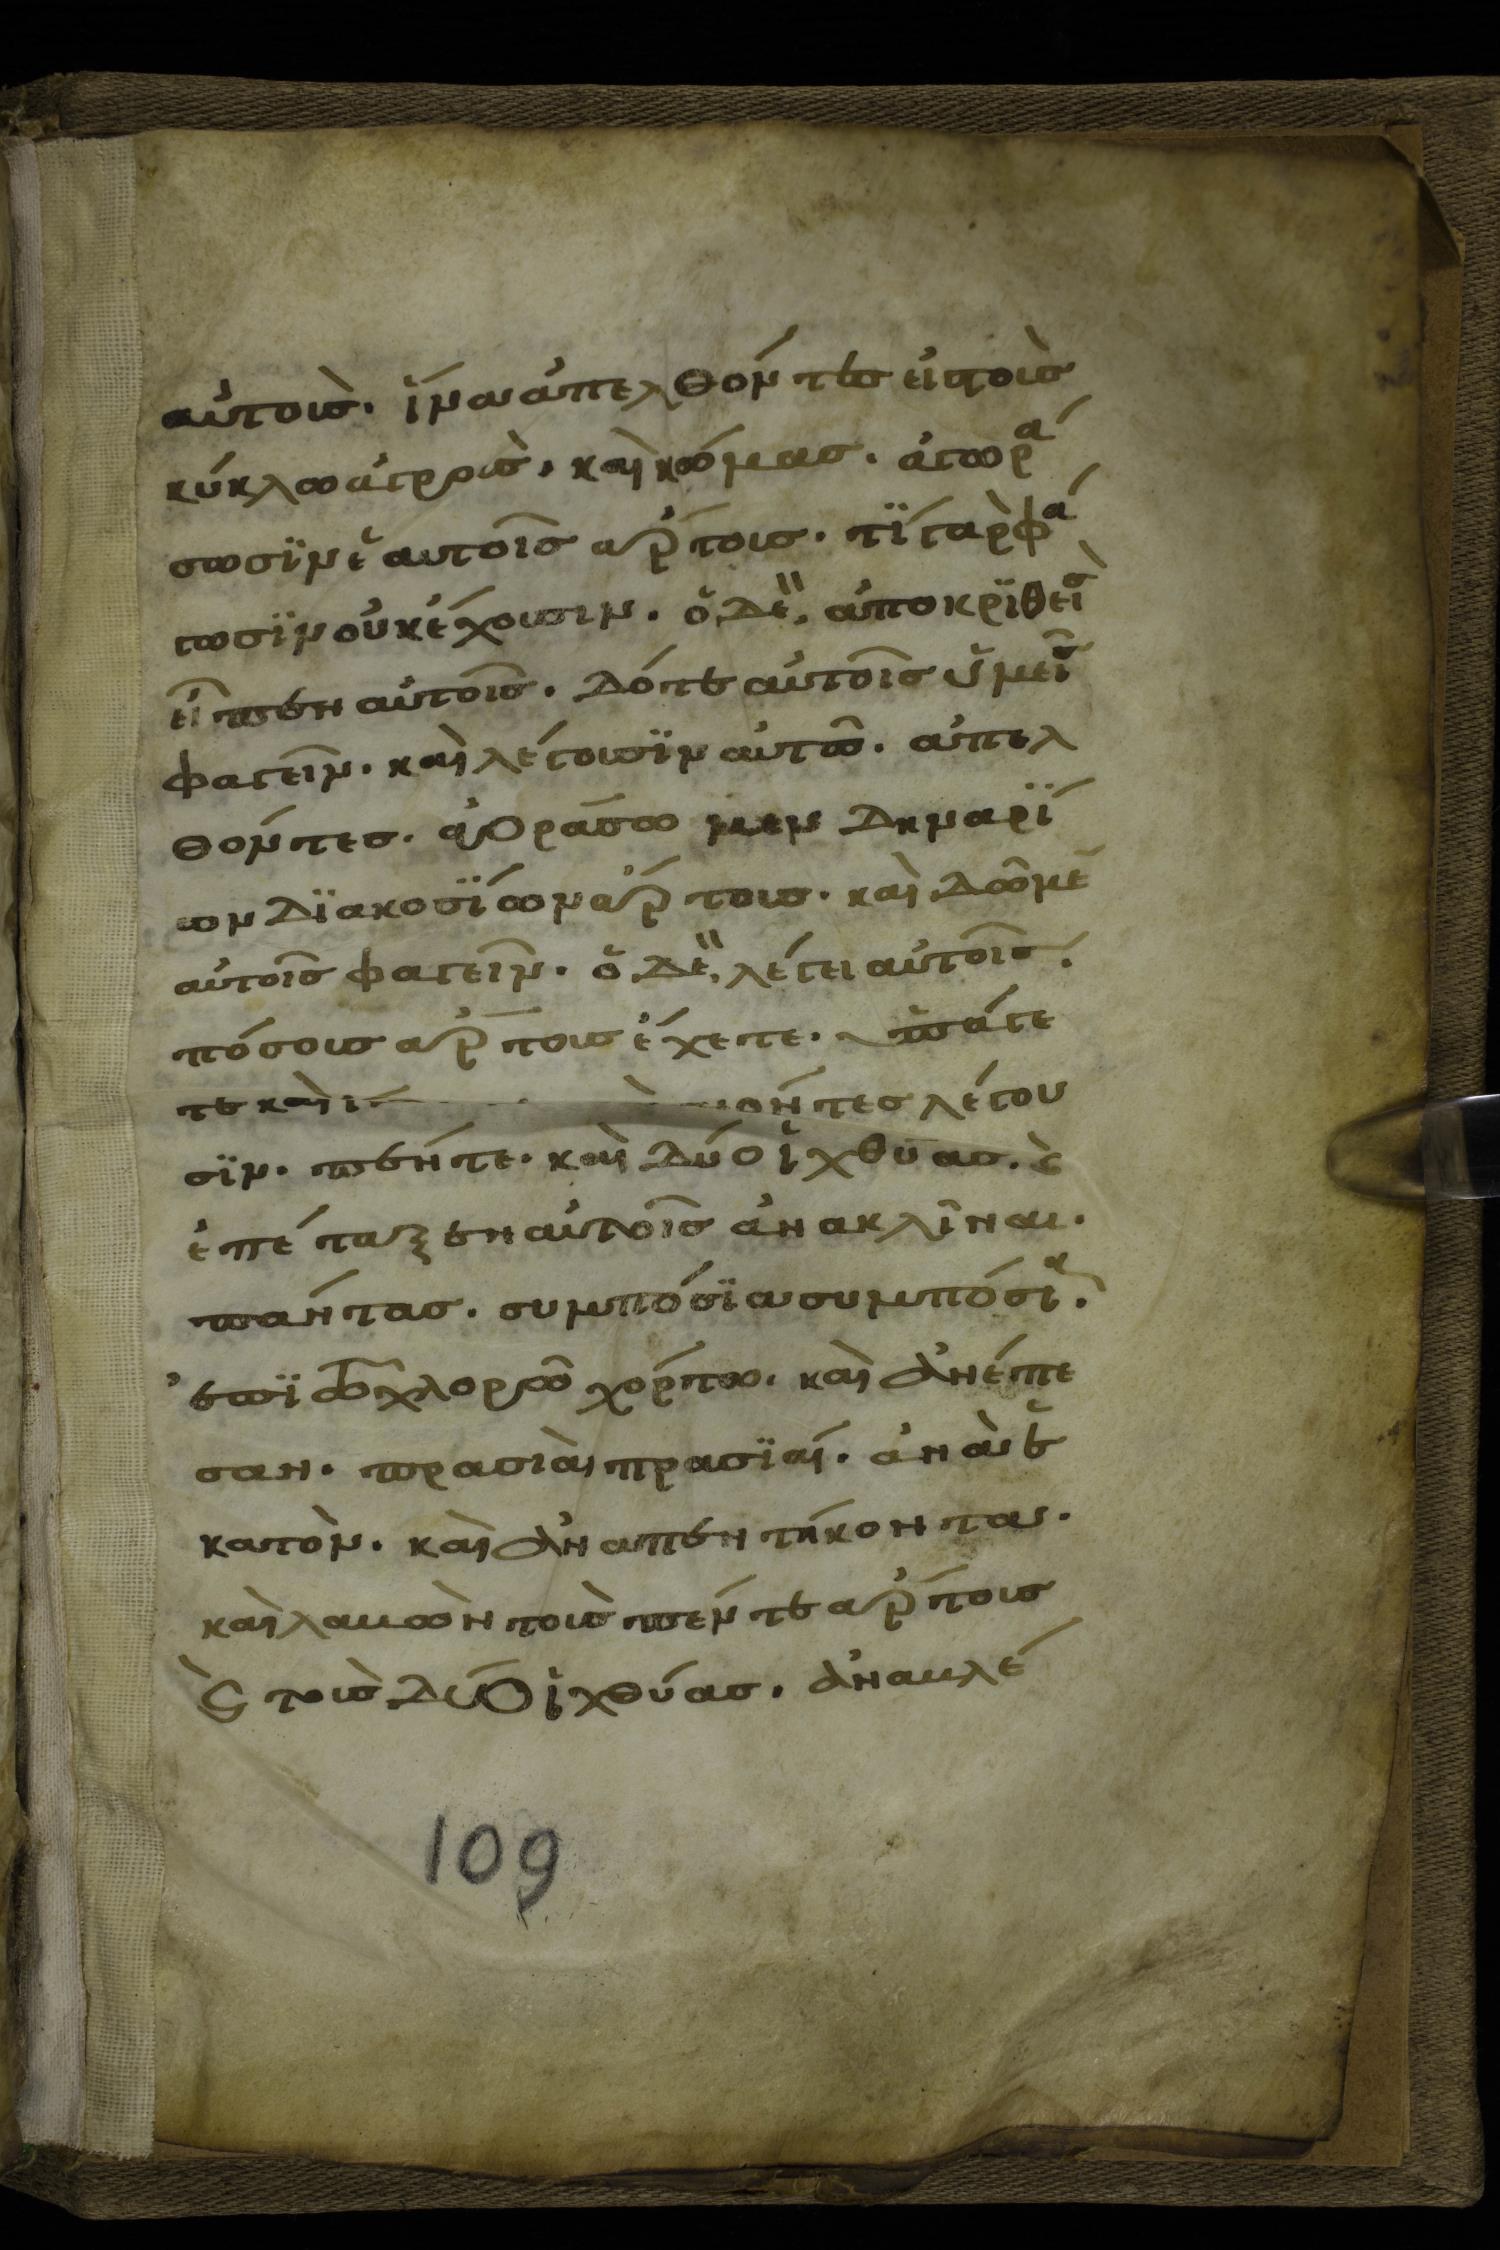 αὐτοὺσ. ἵνα ἀπελθόντεσ εἰσ τοὺσ
κύκλω ἀγροὺσ, καὶ κώμασ. ἀγορά
σωσϊν ἑαυτοῖσ ἄρτουσ. τΐ γὰρ φά
γωσϊν οὐκ ἔχουσιν. ὁ δὲ, ἀποκρϊθεὶσ
εἶπεν αὐτοῖσ. δότε αὐτοῖσ ὑμεῖσ
φαγεῖν. καὶ λέγουσϊν αὐτῶ. ἀπελ
θόντεσ. ἀγοράσωμεν δηναρΐ
ων δϊακοσΐων ἄρτουσ. καὶ δῶμε
αὐτοῖσ φαγεῖν. ὁ δὲ, λέγει αὐτοῖσ.
πόσουσ ἄρτουσ ἔχετε. ὑπάγε
τε καὶ ἴ γνόντεσ λέγου
σϊν. πέντε. καὶ δύο ἰχθύασ. ϛ
ἐπέταξεν αὐτοῖσ ἀνακλῖναι.
πάντασ. συμπόσϊα συμπόσια.
ἐπϊ τῶ χλορῶ χόρτω. καὶ ἀνέπε
σαν. πρασιαὶ πρασϊαί. ἀνὰ ἑ
κατὸν. καὶ ἀνα πεντήκοντα.
καὶ λαβὼν τοὺσ πέντε ἄρτουσ
ϛ τοὺσ δύο ἰχθύασ. ἀναβλέ
109